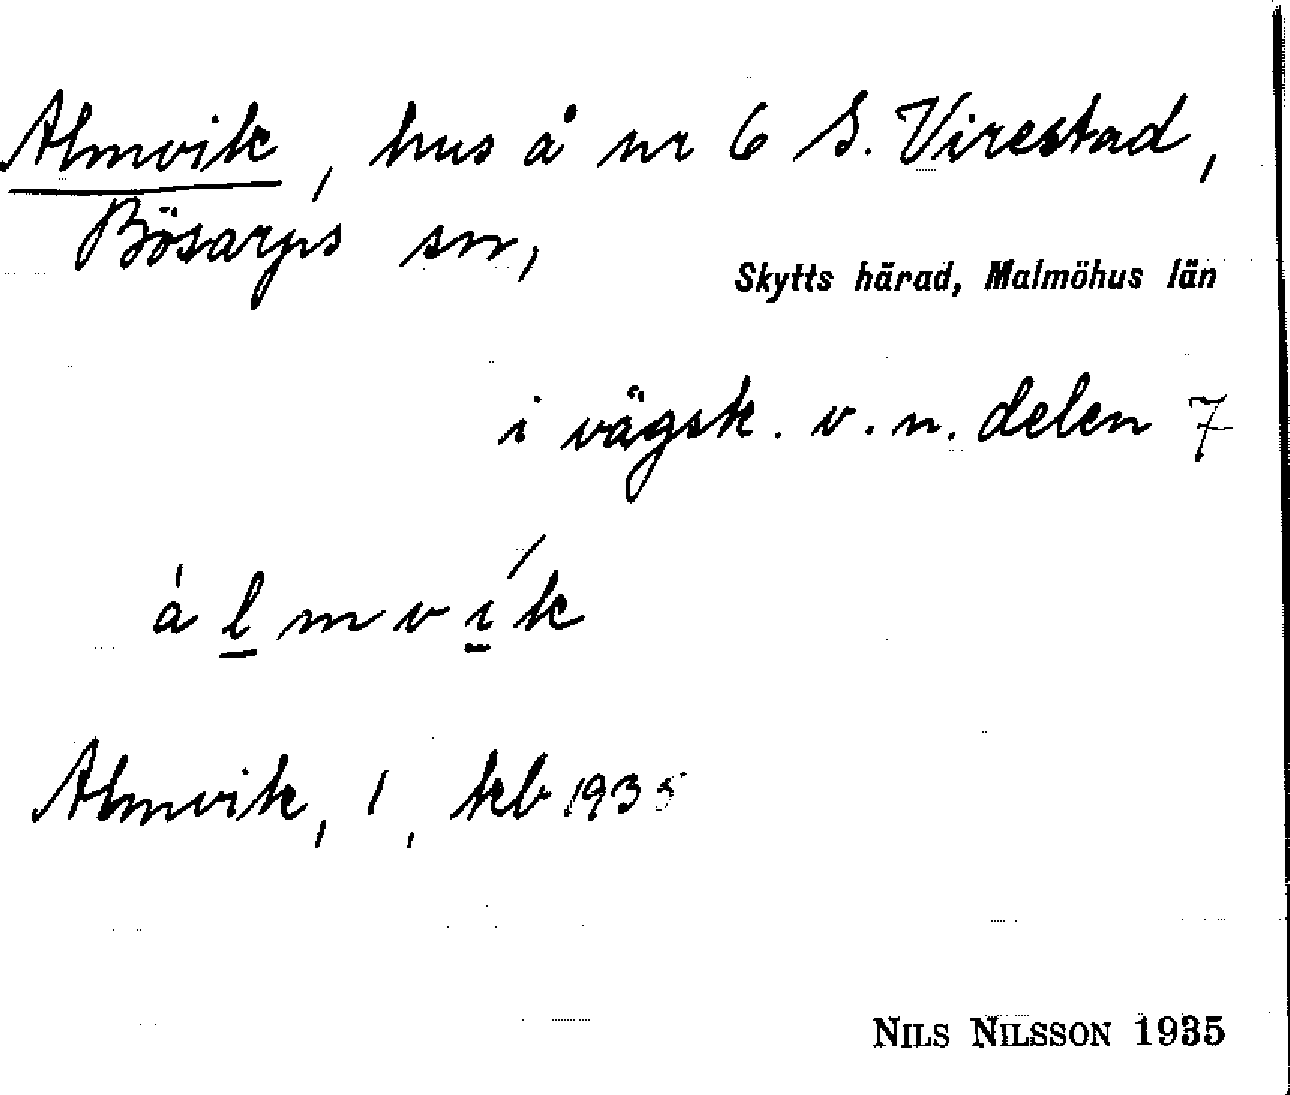 Almvik, hus å nr 6 S. Virestad,
Bösarps sn,
Skytts härad, Malmöhus län
i vägsk. v. n. delen 7
álmvík
Almvik, 1, kb 1935
NILS NILSSON 1935